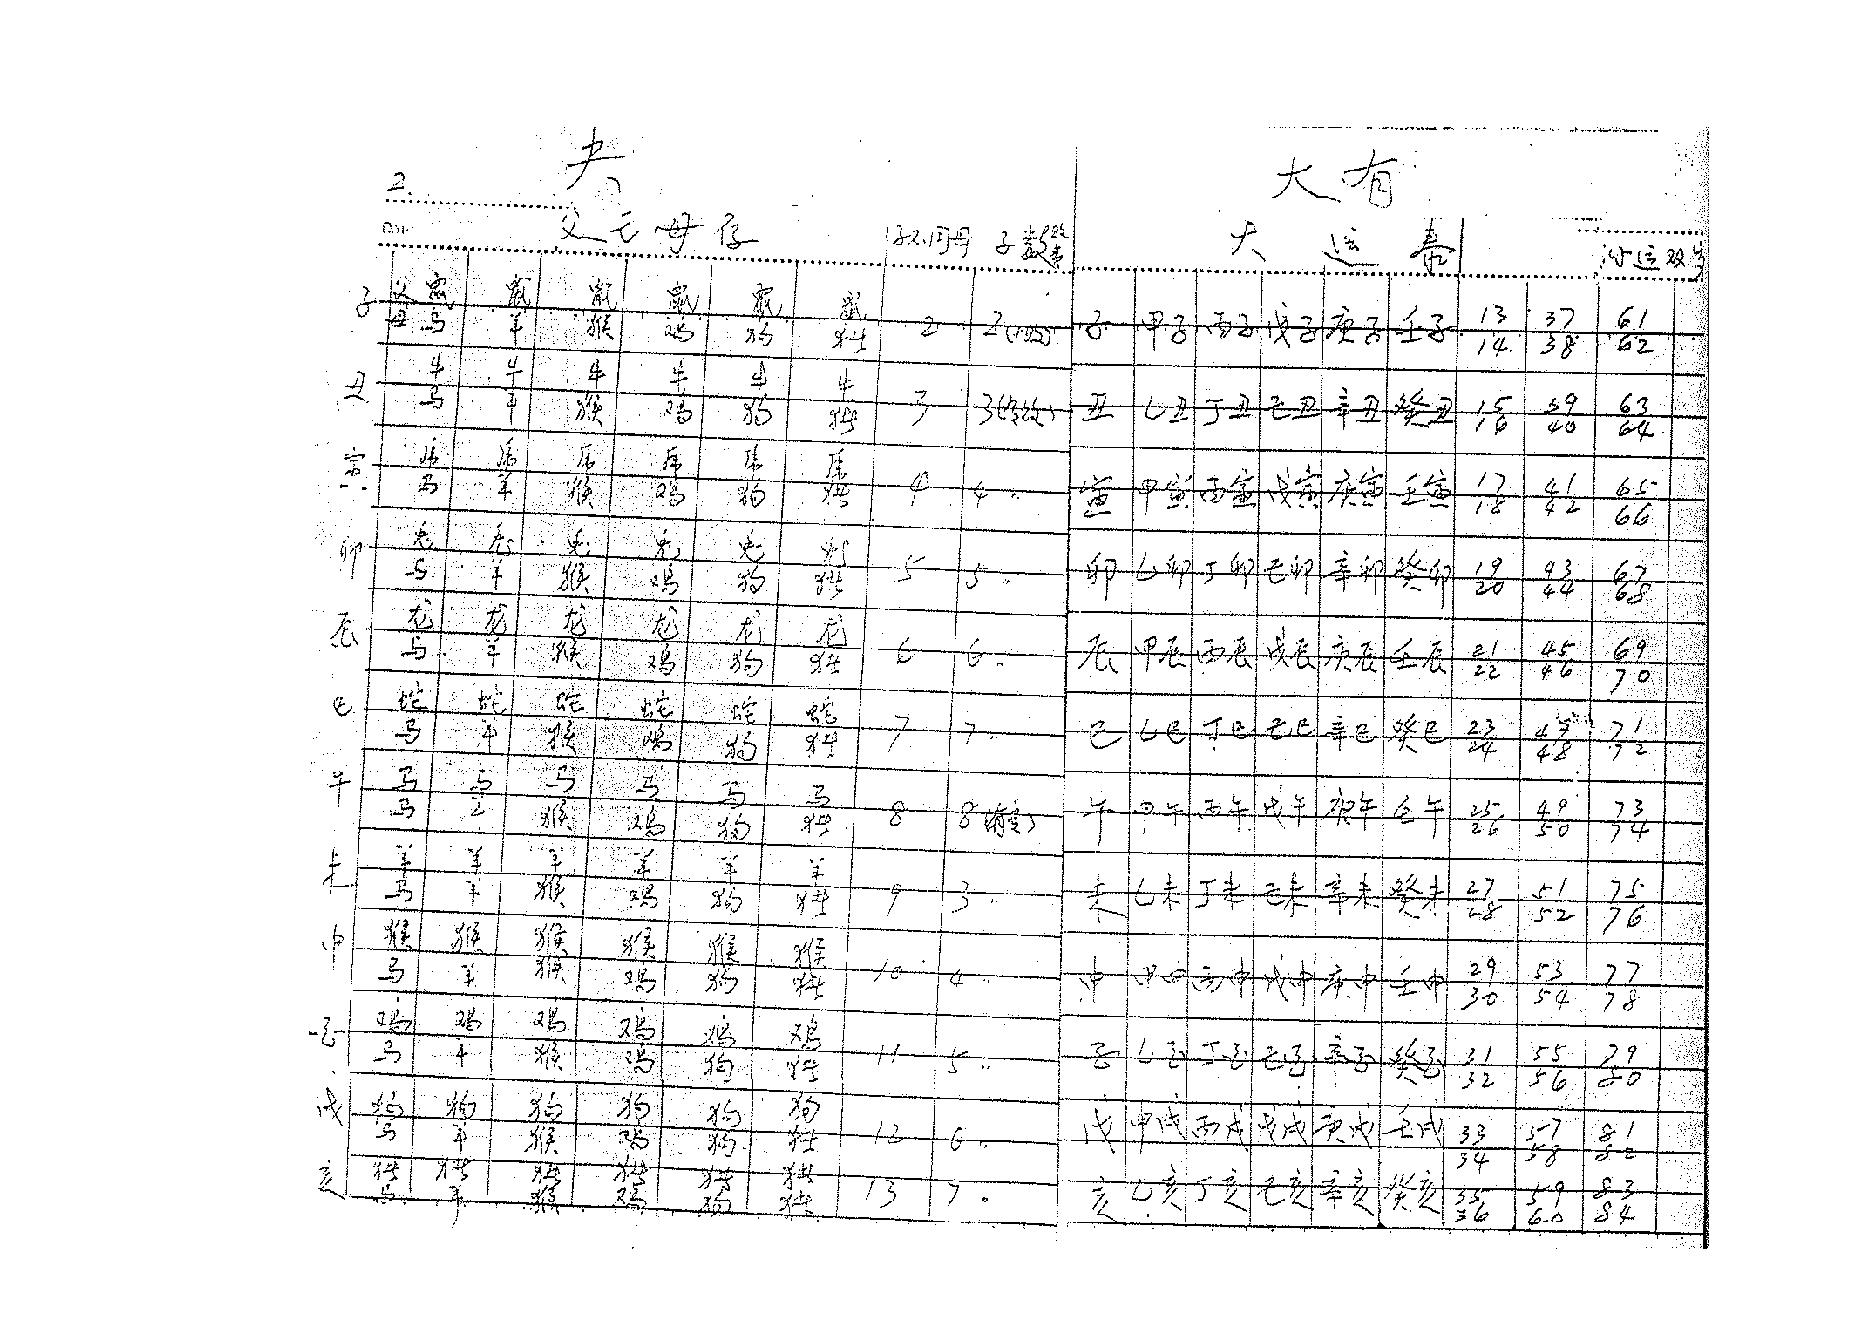 夬 大有
2.
父亡母存 子数 大运 泰 双
子 父鼠 鼠 鼠 鼠 鼠 鼠 2 2 子 甲子 丙子 戊子 庚子 壬子 13 37 61
母马 羊 猴 鸡 狗 猪 14 38 62
丑 牛 牛 牛 牛 牛 牛 3 3 丑 乙丑 丁丑 己丑 辛丑 癸丑 15 39 63
马 羊 猴 鸡 狗 猪 16 40 64
寅 虎 虎 虎 虎 虎 虎 4 4 寅 甲寅 丙寅 戊寅 庚寅 壬寅 17 41 65
马 羊 猴 鸡 狗 猪 18 42 66
卯 兔 兔 兔 兔 兔 兔 5 5 卯 乙卯 丁卯 己卯 辛卯 癸卯 19 43 67
马 羊 猴 鸡 狗 猪 20 44 68
辰 龙 龙 龙 龙 龙 龙 6 6 辰 甲辰 丙辰 戊辰 庚辰 壬辰 21 45 69
马 羊 猴 鸡 狗 猪 22 46 70
巳 蛇 蛇 蛇 蛇 蛇 蛇 7 7 巳 乙巳 丁巳 己巳 辛巳 癸巳 23 47 71
马 羊 猴 鸡 狗 猪 24 48 72
午 马 马 马 马 马 马 8 8 午 甲午 丙午 戊午 庚午 壬午 25 49 73
马 羊 猴 鸡 狗 猪 26 50 74
未 羊 羊 羊 羊 羊 羊 9 3 未 乙未 丁未 己未 辛未 癸未 27 51 75
马 羊 猴 鸡 狗 猪 28 52 76
申 猴 猴 猴 猴 猴 猴 10 4 申 甲申 丙申 戊申 庚申 壬申 29 53 77
马 羊 猴 鸡 狗 猪 30 54 78
酉 鸡 鸡 鸡 鸡 鸡 鸡 11 5 酉 乙酉 丁酉 己酉 辛酉 癸酉 31 55 79
马 羊 猴 鸡 狗 猪 32 56 80
戌 狗 狗 狗 狗 狗 狗 12 6 戌 甲戌 丙戌 戊戌 庚戌 壬戌 33 57 81
马 羊 猴 鸡 狗 猪 34 58 82
亥 猪 猪 猪 猪 猪 猪 13 7 亥 乙亥 丁亥 己亥 辛亥 癸亥 35 59 83
马 羊 猴 鸡 狗 猪 36 60 84